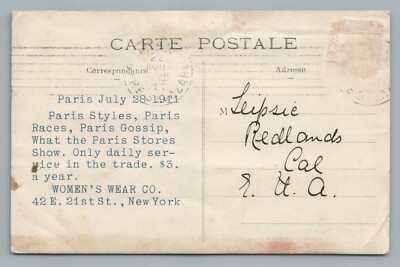 CARTE POSTALE
Correspondance
Adresse
Paris July 28 1911
Paris Styles, Paris
Races, Paris Gossip,
What the Paris Stores
Show. Only daily ser-
vice in the trade. $3.
a year.
WOMEN'S WEAR CO.
42 E. 21st St., New York
M Leipsic
Redlands
Cal
E. U. A.